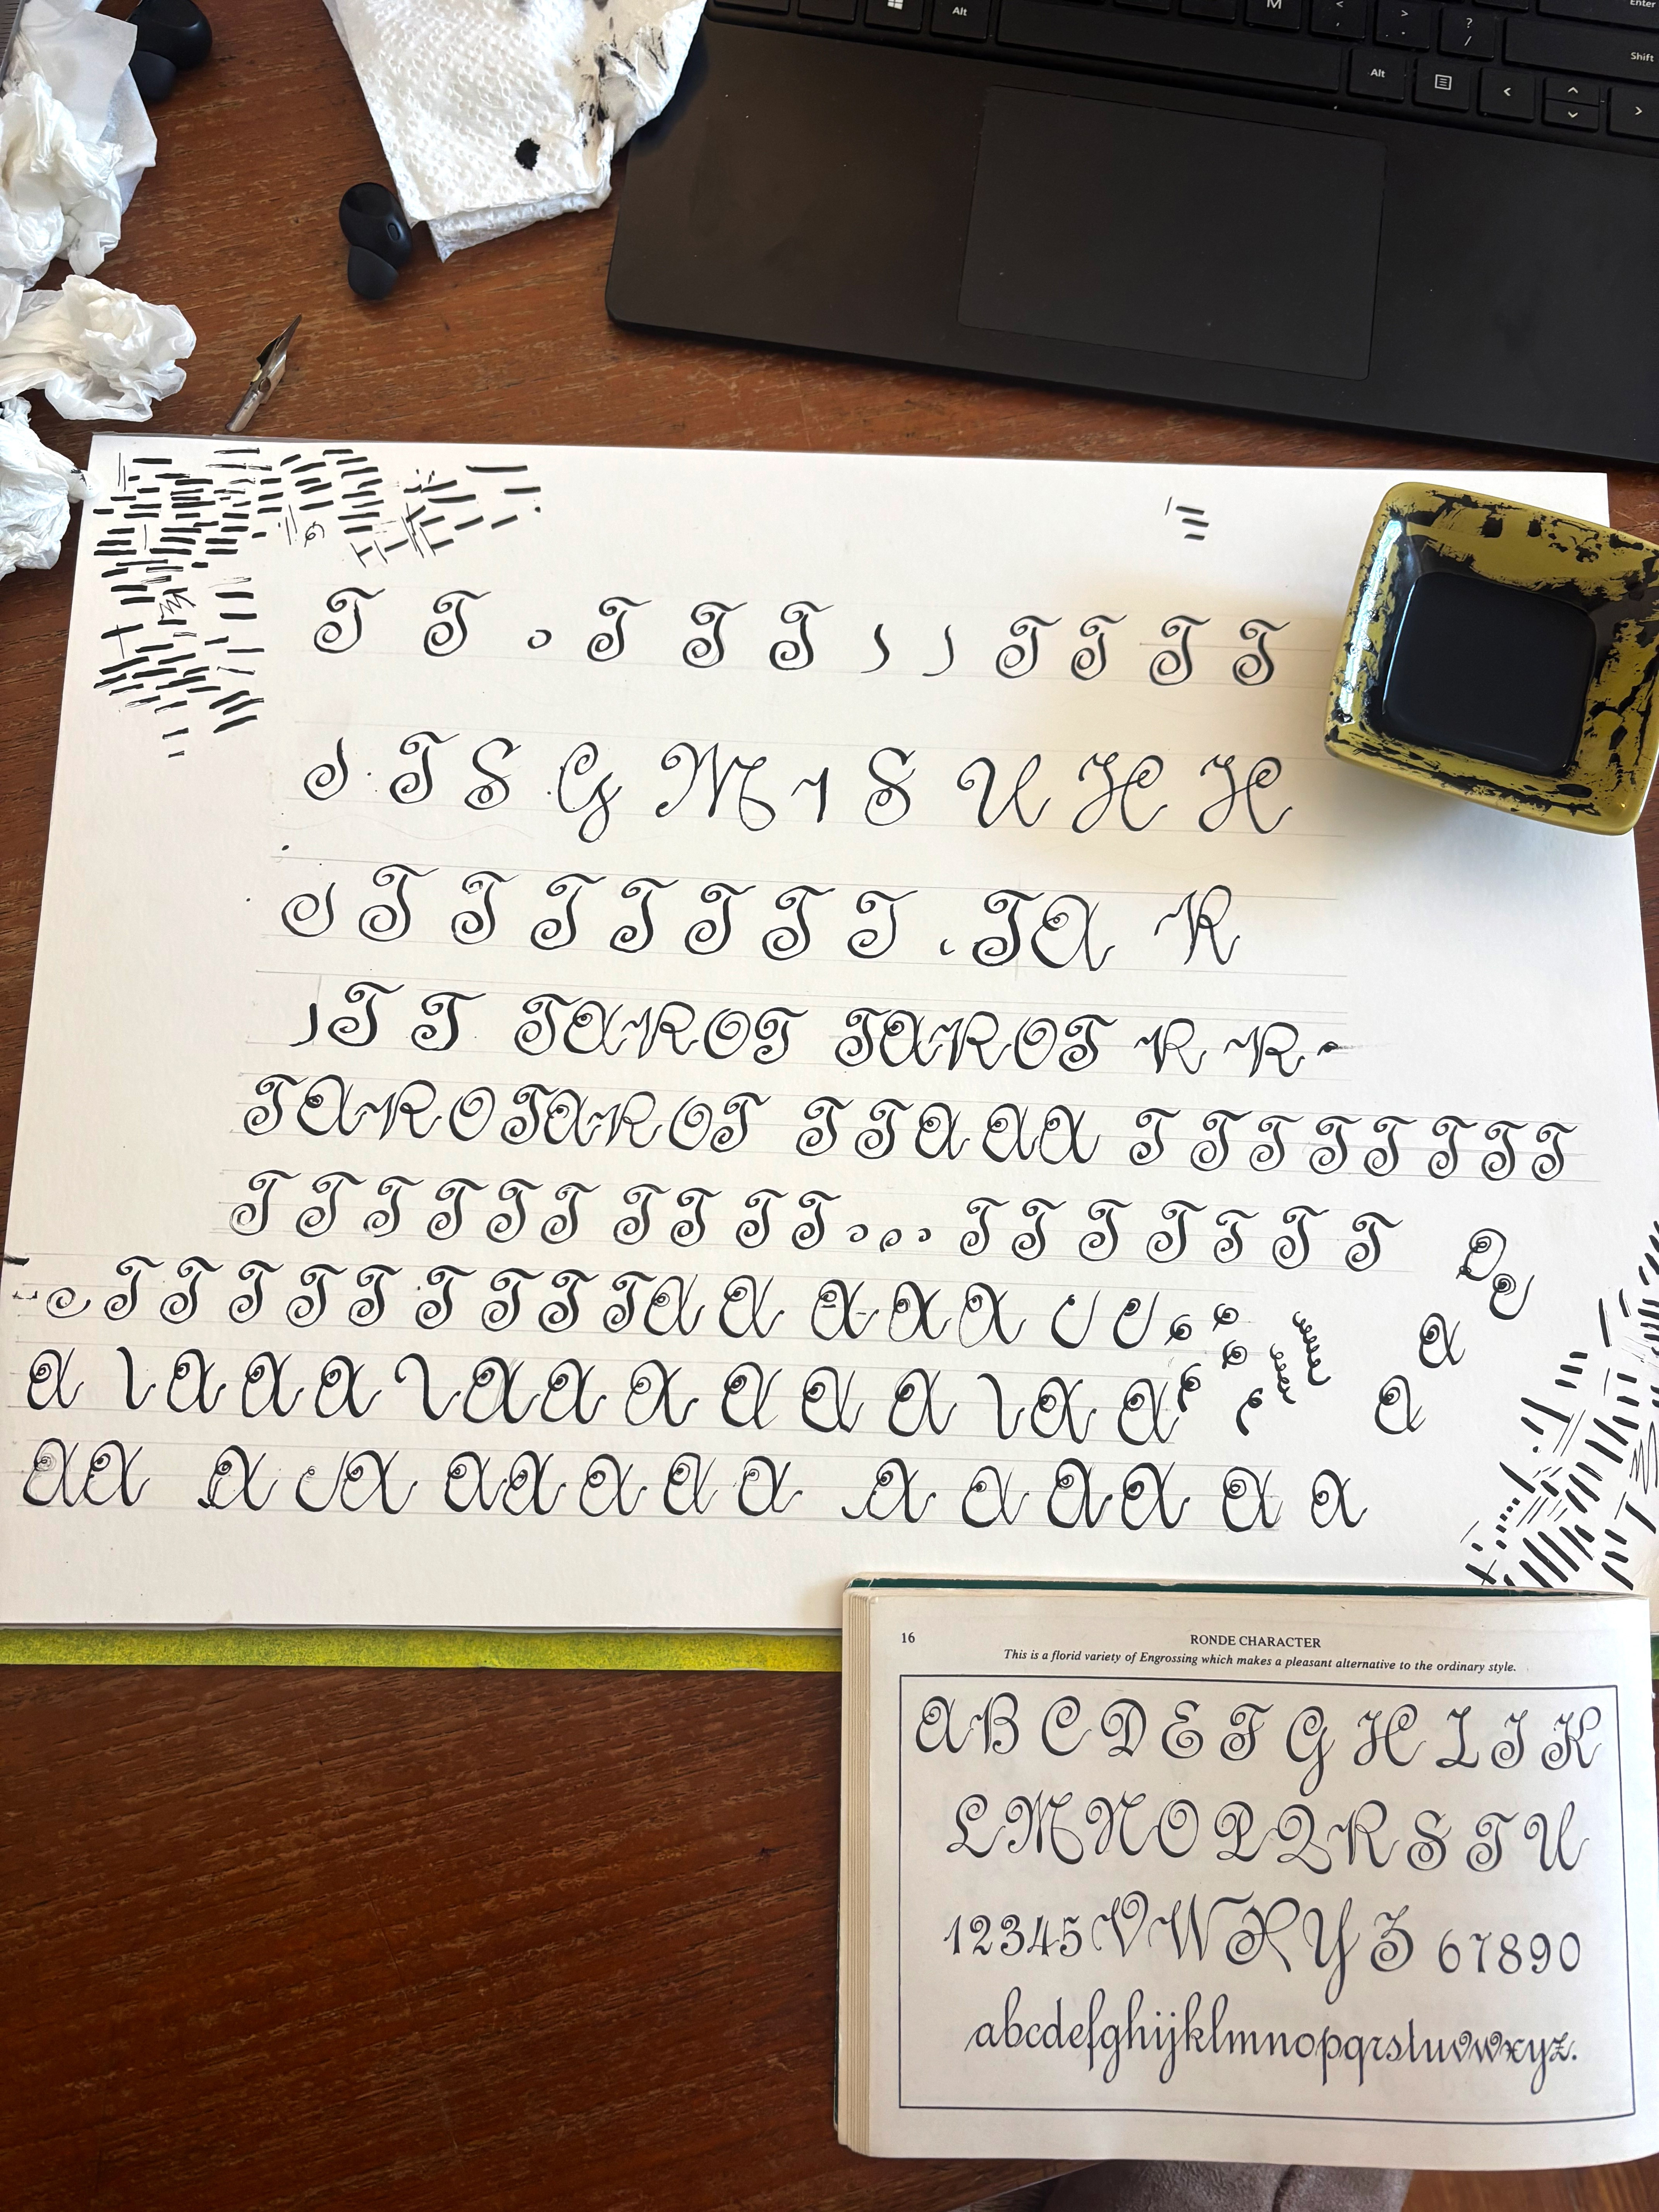 Alt M < > ? / Enter
Alt < > Shift
T T T T T T T T T
T S G M 1 S U H H
T T T T T T T T A R
T T TAROT TAROT R R
TAROTAROT T T A A A T T T T T T T T
T T T T T T T T T T T T T T T T T
T T T T T T T T T A A A A A
A A A A A A A A A A A A
A A A A A A A A A A A A A A A
16 RONDE CHARACTER
This is a florid variety of Engrossing which makes a pleasant alternative to the ordinary style.
A B C D E F G H I J K
L M N O P Q R S T U
12345 V W X Y Z 67890
abcdefghijklmnopqrstuvwxyz.